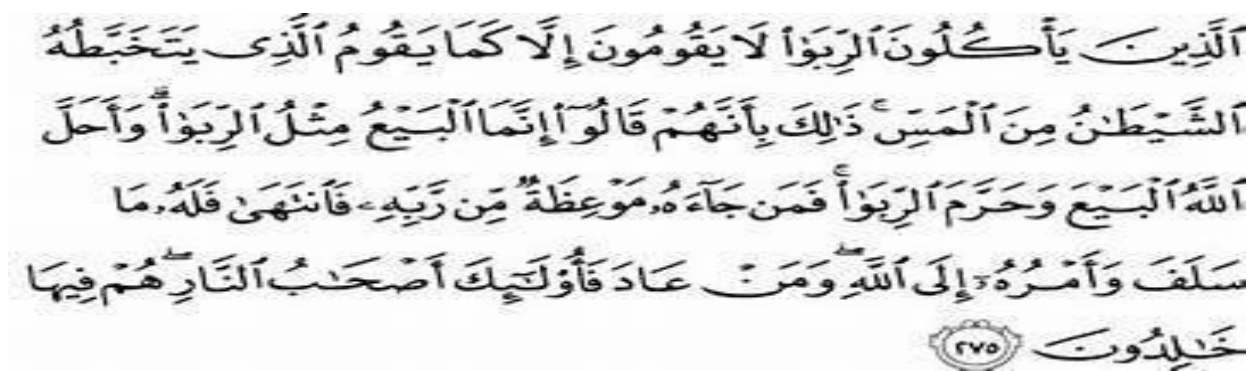 ٱلَّذِينَ يَأْكُلُونَ ٱلرِّبَوٰا۟ لَا يَقُومُونَ إِلَّا كَمَا يَقُومُ ٱلَّذِى يَتَخَبَّطُهُ
ٱلشَّيْطَـٰنُ مِنَ ٱلْمَسِّ ۚ ذَٰلِكَ بِأَنَّهُمْ قَالُوٓا۟ إِنَّمَا ٱلْبَيْعُ مِثْلُ ٱلرِّبَوٰا۟ ۗ وَأَحَلَّ
ٱللَّهُ ٱلْبَيْعَ وَحَرَّمَ ٱلرِّبَوٰا۟ ۚ فَمَن جَآءَهُۥ مَوْعِظَةٌ مِّن رَّبِّهِۦ فَٱنتَهَىٰ فَلَهُۥ مَا
سَلَفَ وَأَمْرُهُۥٓ إِلَى ٱللَّهِ ۖ وَمَنْ عَادَ فَأُو۟لَـٰٓئِكَ أَصْحَـٰبُ ٱلنَّارِ ۖ هُمْ فِيهَا
خَـٰلِدُونَ ٢٧٥